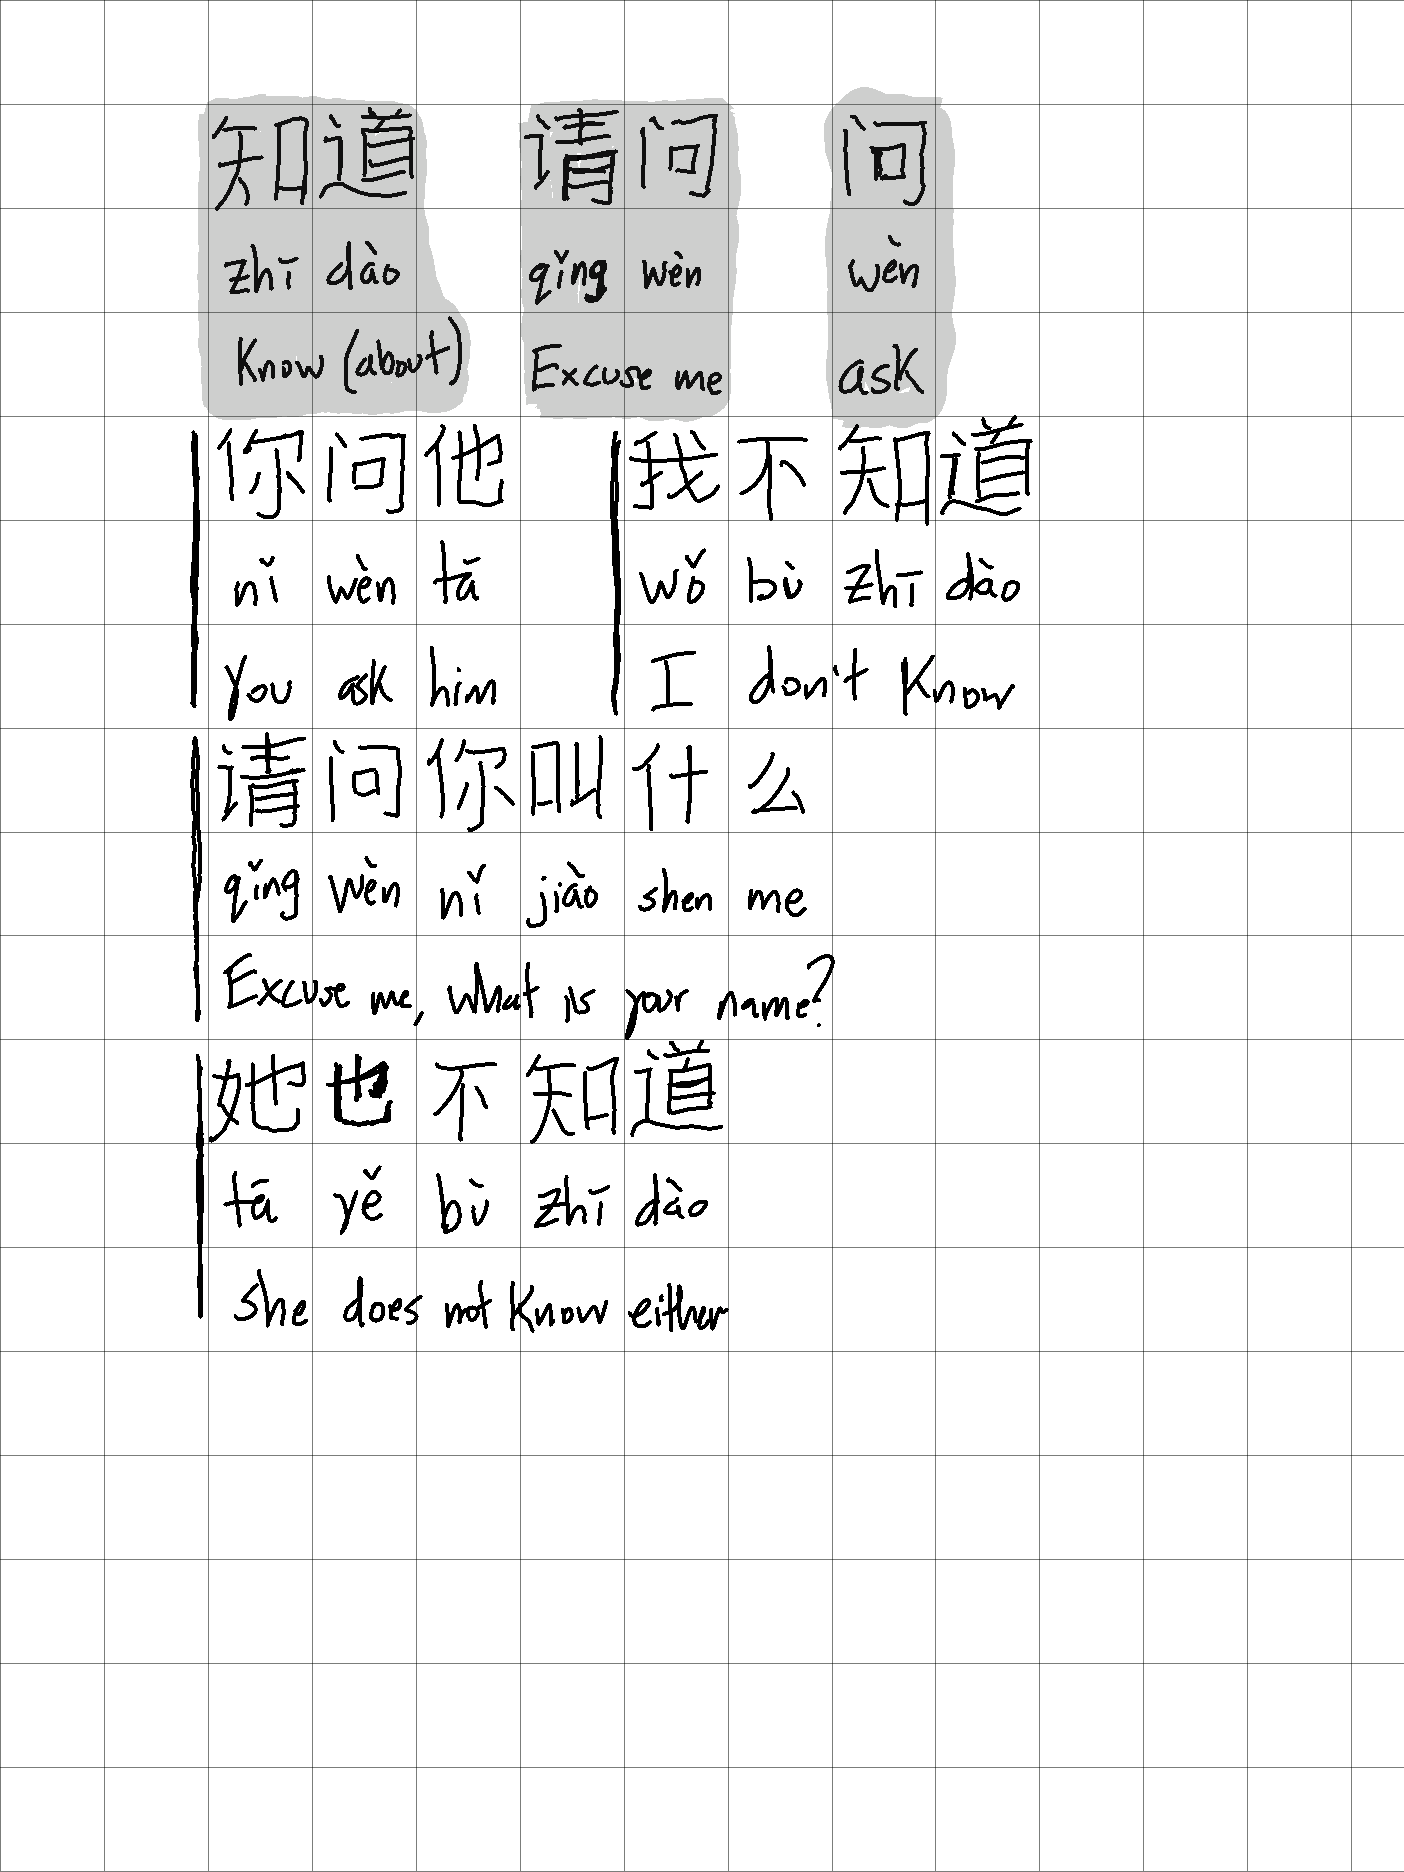 知道 请问 问
zhī dào qǐng wèn wèn
Know (about) Excuse me ask
你问他 我不知道
nǐ wèn tā wǒ bù zhī dào
you ask him I don't know
请问你叫什么
qǐng wèn nǐ jiào shen me
Excuse me, what is your name?
她也不知道
tā yě bù zhī dào
she does not know either